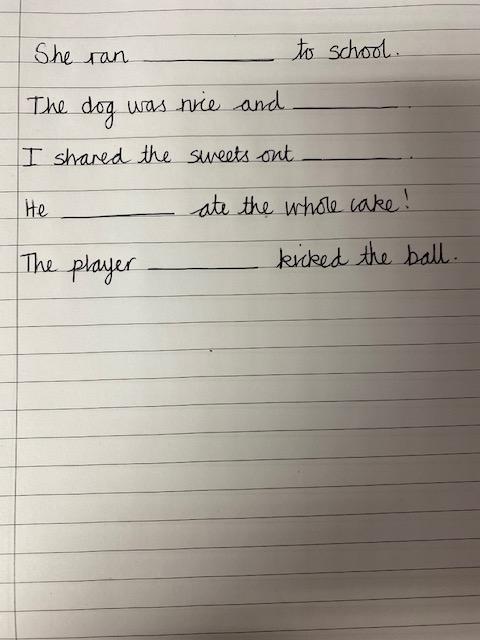 She ran __________ to school.
The dog was nice and __________.
I shared the sweets out __________.
He __________ ate the whole cake!
The player __________ kicked the ball.